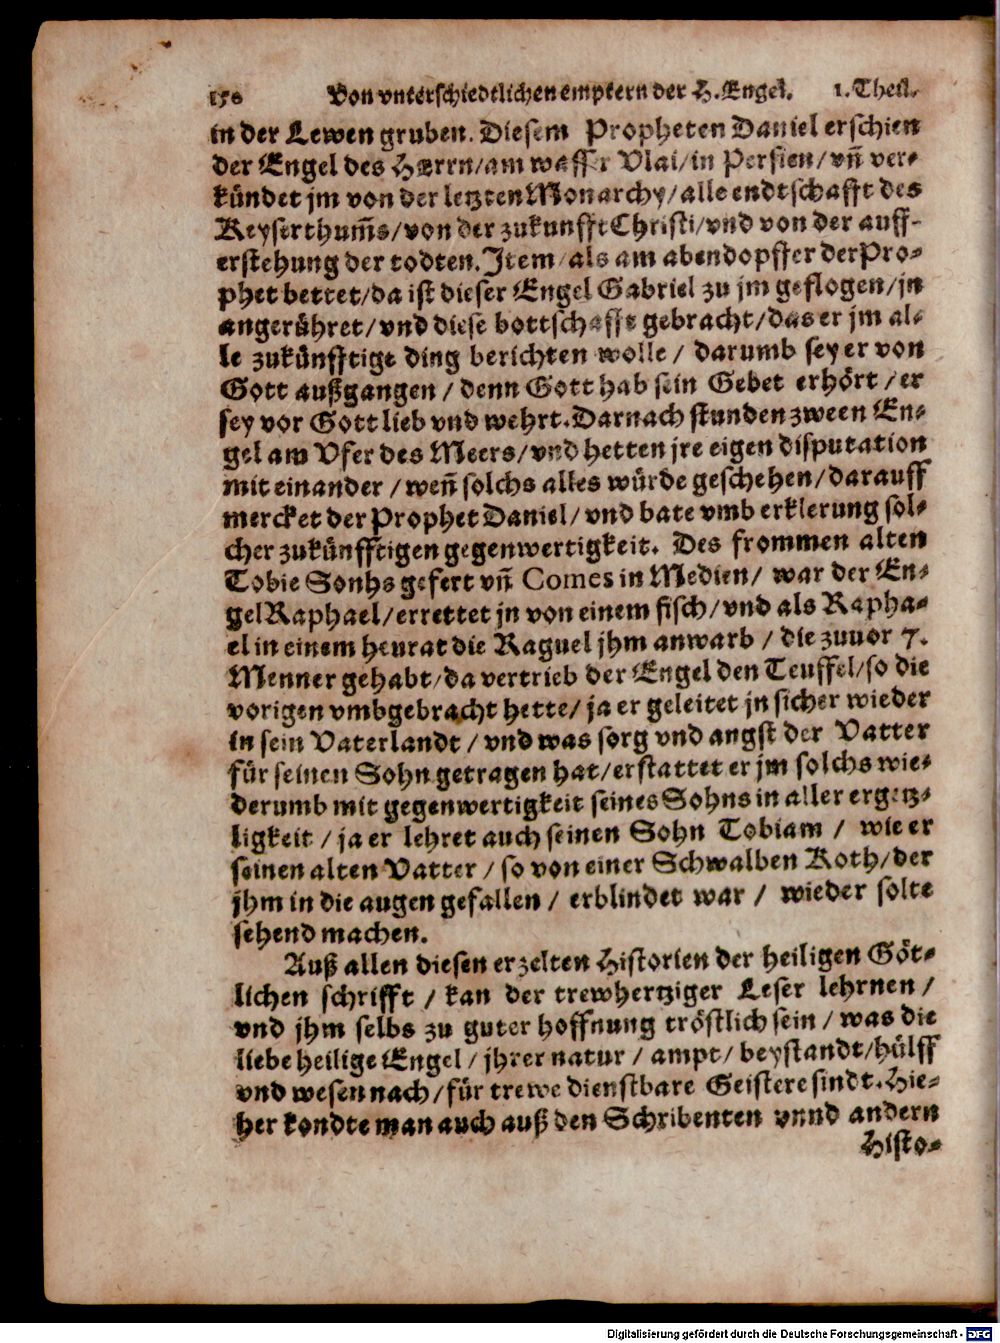 150 Von vnterschiedtlichen emptern der H. Engel. 1. Theil.
in der Lewen gruben. Diesem Propheten Daniel erschien
der Engel des Herrn/am wasser Vlai/in Persien/vn̄ ver-
kündet jm von der letzten Monarchy/alle endtschafft des
Keyserthum̄s/von der zukunfft Christi/vnd von der auff-
erstehung der todten. Item als am abendopffer der Pro-
phet bettet/da ist dieser Engel Gabriel zu jm geflogen/jn
angerühret/vnd diese bottschafft gebracht/das er jm al-
le zukünfftige ding berichten wolle / darumb sey er von
Gott außgangen / denn Gott hab sein Gebet erhört / er
sey vor Gott lieb vnd wehrt. Darnach stunden zween En-
gel am Vfer des Meers/vnd hetten jre eigen disputation
mit einander / wen̄ solchs alles würde geschehen/darauff
mercket der Prophet Daniel/vnd bate vmb erklerung sol-
cher zukünfftigen gegenwertigkeit. Des frommen alten
Tobie Sonhs gefert vn̄ Comes in Medien/ war der En-
gel Raphael/errettet jn von einem fisch/vnd als Rapha-
el in einem heurat die Raguel jhm anwarb / die zuuor 7.
Menner gehabt/da vertrieb der Engel den Teuffel/so die
vorigen vmbgebracht hette/ ja er geleitet jn sicher wieder
in sein Vaterlandt / vnd was sorg vnd angst der Vatter
für seinen Sohn getragen hat/erstattet er jm solchs wie-
derumb mit gegenwertigkeit seines Sohns in aller ergetz-
ligkeit / ja er lehret auch seinen Sohn Tobiam / wie er
seinen alten Vatter / so von einer Schwalben Koth/der
jhm in die augen gefallen / erblindet war / wieder solte
sehend machen.
Auß allen diesen erzelten Historien der heiligen Göt-
lichen schrifft / kan der trewhertziger Leser lehrnen /
vnd jhm selbs zu guter hoffnung tröstlich sein / was die
liebe heilige Engel / jhrer natur / ampt/ beystandt/hülff
vnd wesen nach/für trewe dienstbare Geistere sindt. Hie-
her kondte man auch auß den Schribenten vnnd andern
Histo-
Digitalisierung gefördert durch die Deutsche Forschungsgemeinschaft - DFG